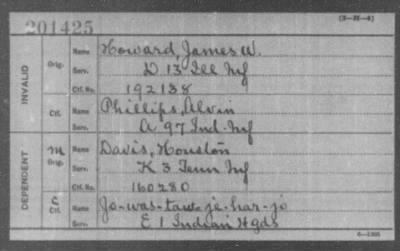 (3-21-4)
201425
INVALID
Orig.
Name Howard, James W.
Serv. D 13 Ill Inf
Ctf. No. 192138
Ctf.
Name Phillips, Alvin
Serv. A 97 Ind. Inf
DEPENDENT
M
Orig.
Name Davis, Houston
Serv. K 3 Tenn Inf
Ctf. No. 160280
C
Ctf.
Name Jo-was-taw-je-har-jo
Serv. E 1 Indian H gds
6-1305